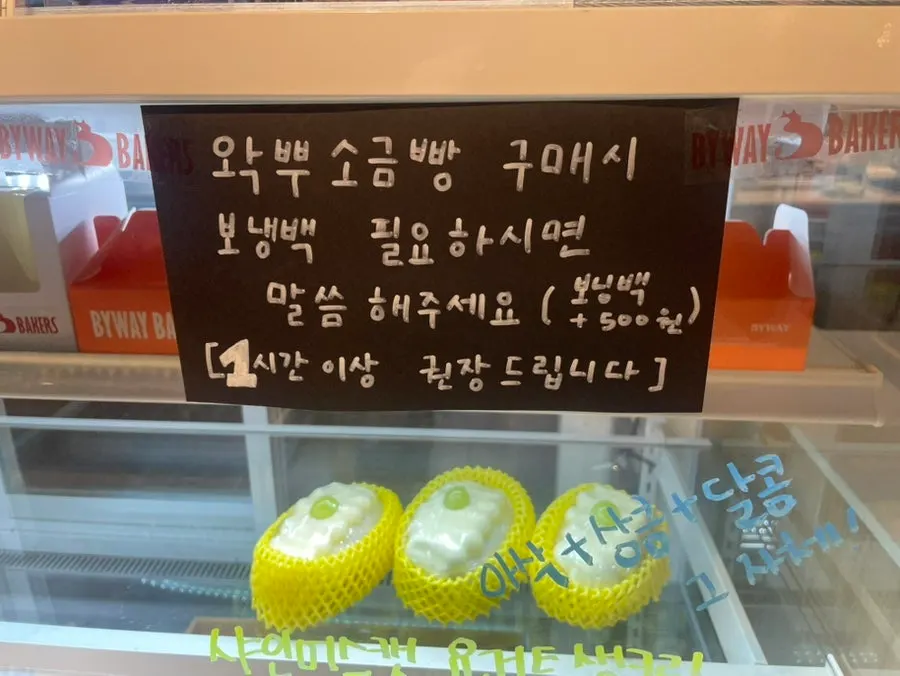 BYWAY BAKERS
BYWAY BAKERS
왁뿌 소금빵 구매시
보냉백 필요하시면
말씀 해주세요 (보냉백 + 500원)
[1시간 이상 권장드립니다]
BAKERS
BYWAY BA
BYWAY
아삭+상콤+달콤
그 자체!
샤인머스캣 요거트 생크림